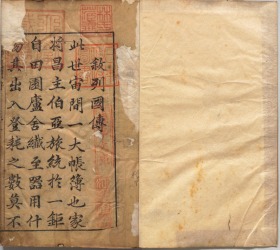 敘列國傳
此世宙間一大帳簿也家
將昌主伯亞旅統於一鉅
自田園廬舍纖至器用什
物其出入登耗之數莫不